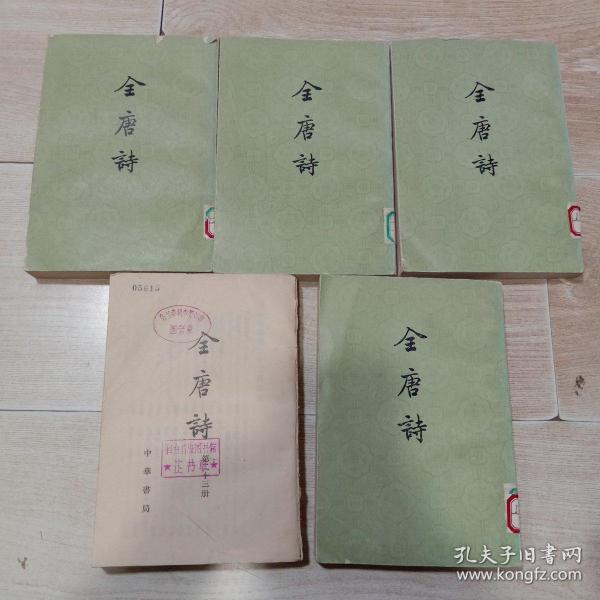 全唐詩
全唐詩
全唐詩
05615
全唐詩
第十二册
中華書局
全唐詩
孔夫子旧书网
www.kongfz.com